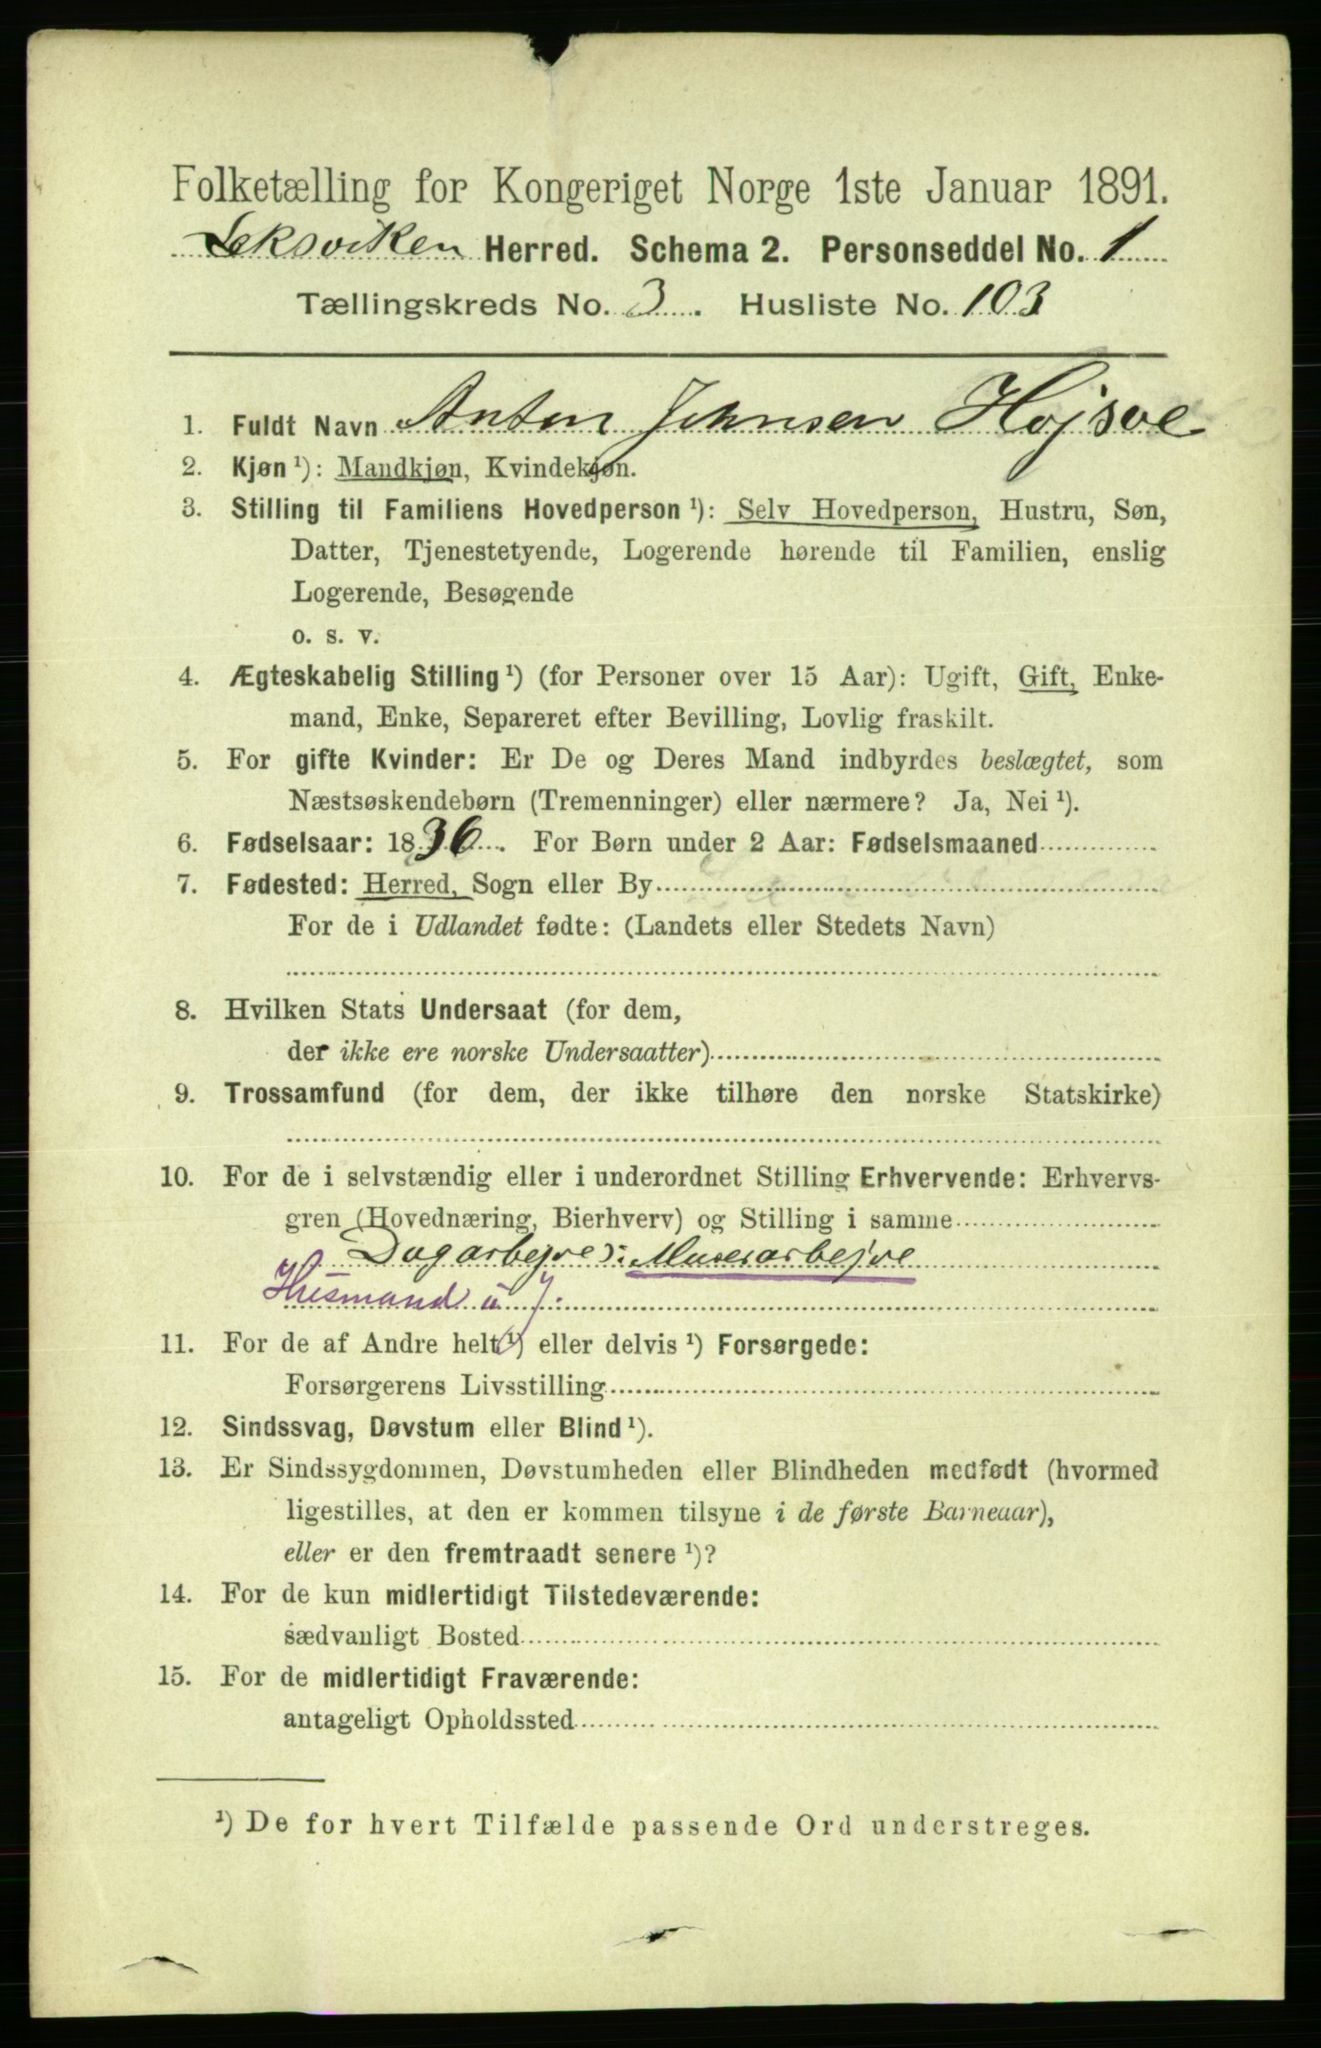 Folketælling for Kongeriget Norge 1ste Januar 1891.
Leksviken Herred. Schema 2. Personseddel No. 1
Tællingskreds No. 3. Husliste No. 103
1. Fuldt Navn Anton Johnsen Hojsve
2. Kjøn ¹): Mandkjøn, Kvindekjøn.
3. Stilling til Familiens Hovedperson ¹): Selv Hovedperson, Hustru, Søn,
Datter, Tjenestetyende, Logerende hørende til Familien, enslig
Logerende, Besøgende
o. s. v.
4. Ægteskabelig Stilling ¹) (for Personer over 15 Aar): Ugift, Gift, Enke-
mand, Enke, Separeret efter Bevilling, Lovlig fraskilt.
5. For gifte Kvinder: Er De og Deres Mand indbyrdes beslægtet, som
Næstsøskendebørn (Tremenninger) eller nærmere? Ja, Nei ¹).
6. Fødselsaar: 1836. For Børn under 2 Aar: Fødselsmaaned
7. Fødested: Herred, Sogn eller By
For de i Udlandet fødte: (Landets eller Stedets Navn)
8. Hvilken Stats Undersaat (for dem,
der ikke ere norske Undersaatter)
9. Trossamfund (for dem, der ikke tilhøre den norske Statskirke)
10. For de i selvstændig eller i underordnet Stilling Erhvervende: Erhvervs-
gren (Hovednæring, Bierhverv) og Stilling i samme
Dagarbejde: Murerarbejde
Husmand u. J.
11. For de af Andre helt ¹) eller delvis ¹) Forsørgede:
Forsørgerens Livsstilling
12. Sindssvag, Døvstum eller Blind ¹).
13. Er Sindssygdommen, Døvstumheden eller Blindheden medfødt (hvormed
ligestilles, at den er kommen tilsyne i de første Barneaar),
eller er den fremtraadt senere ¹)?
14. For de kun midlertidigt Tilstedeværende:
sædvanligt Bosted
15. For de midlertidigt Fraværende:
antageligt Opholdssted
¹) De for hvert Tilfælde passende Ord understreges.